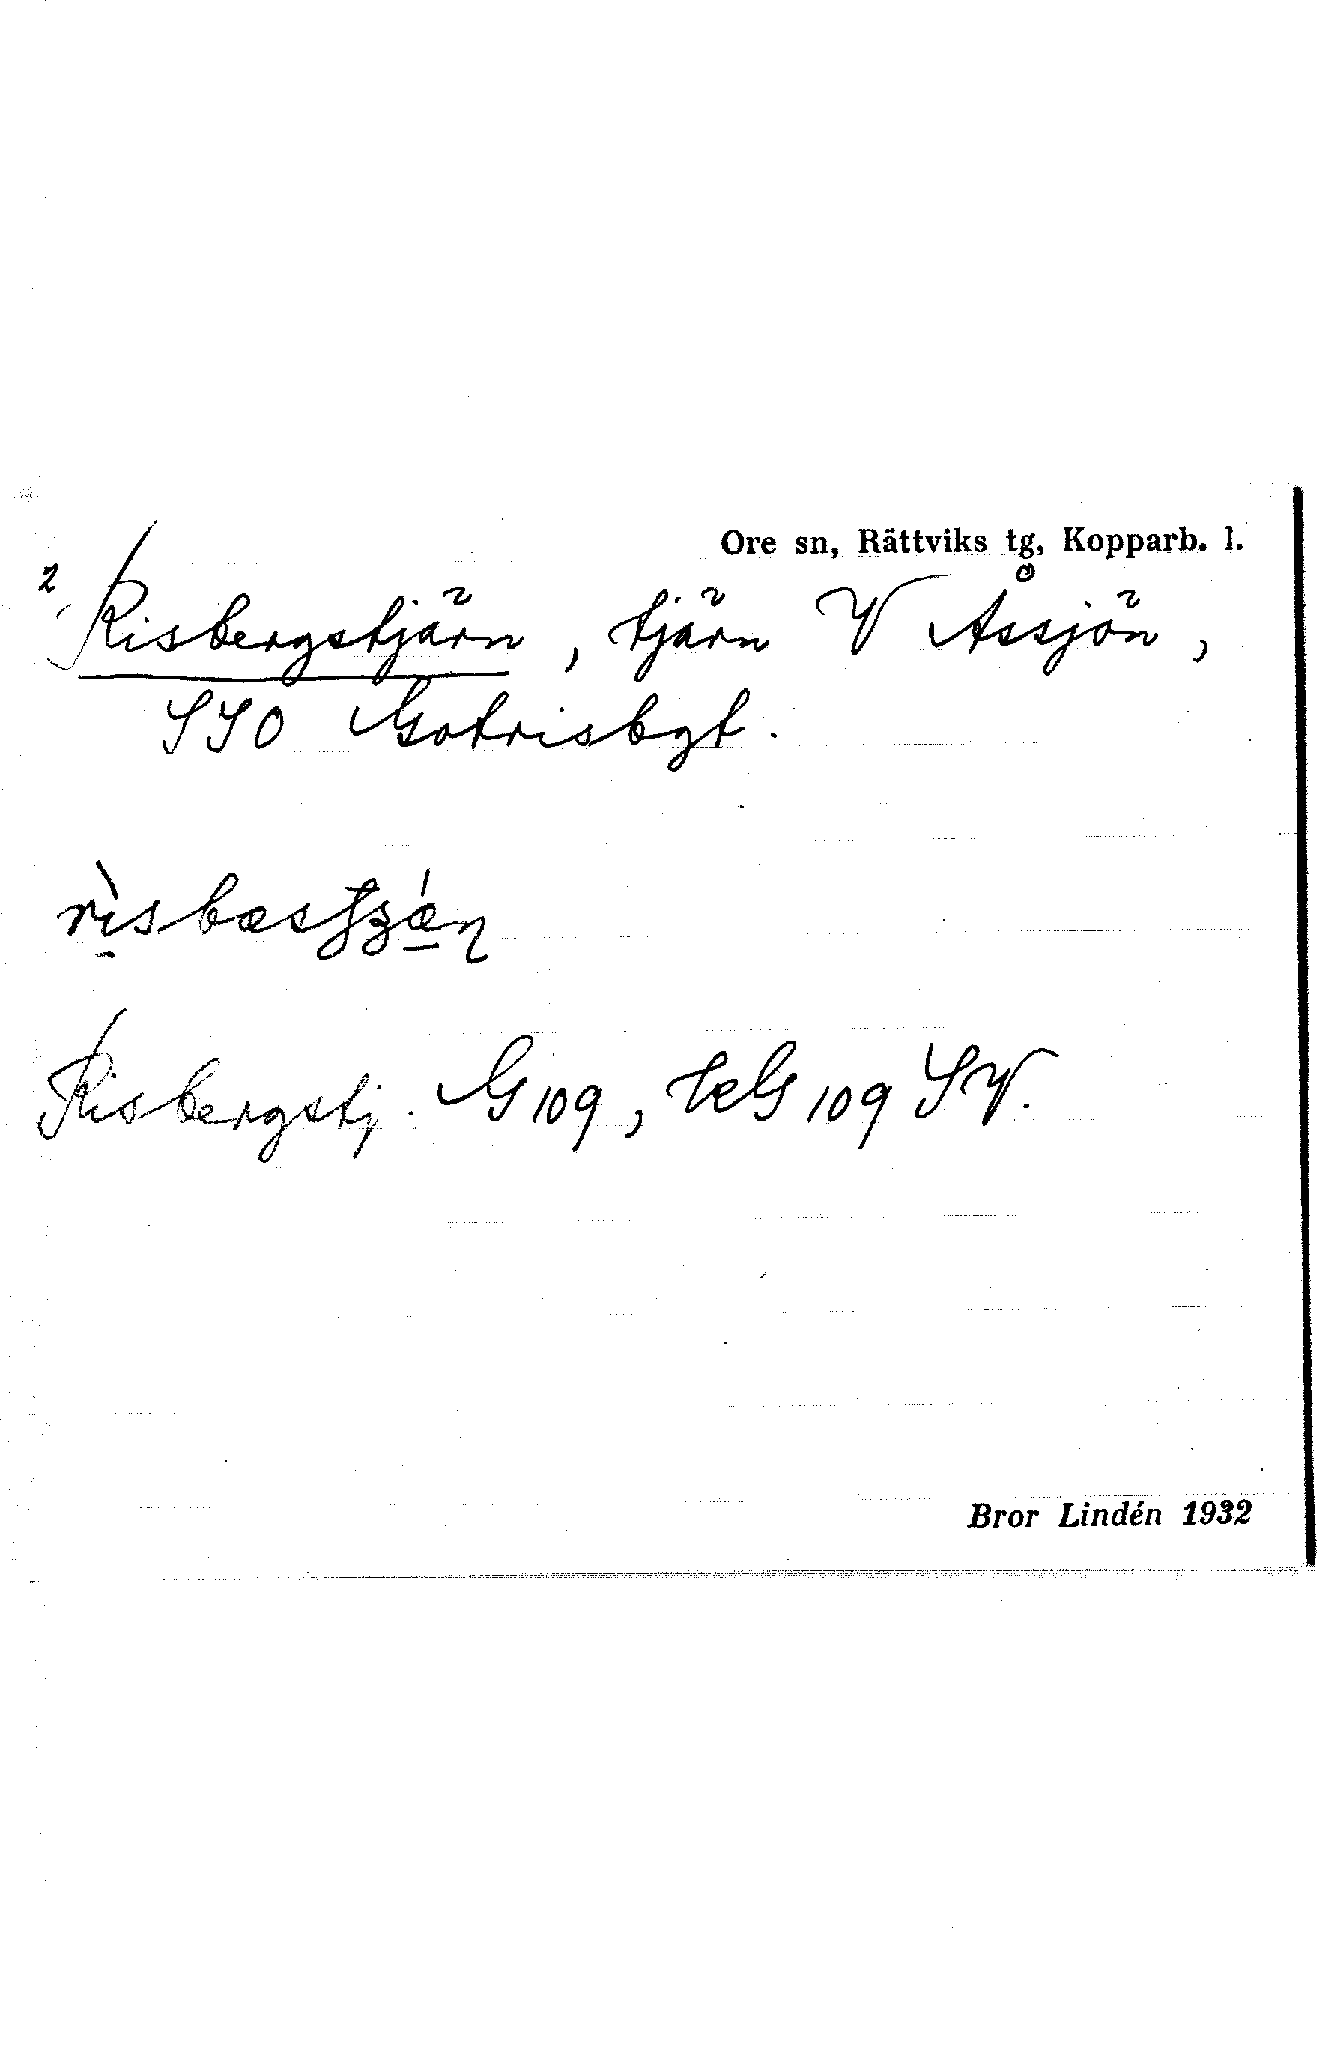 Ore sn, Rättviks tg, Kopparb. l.
2 Risbergstjärn, tjärn V Åssjön,
SSO Gotrisbgt.
Risbergstj. G 109, KG 109 SV.
Bror Lindén 1932